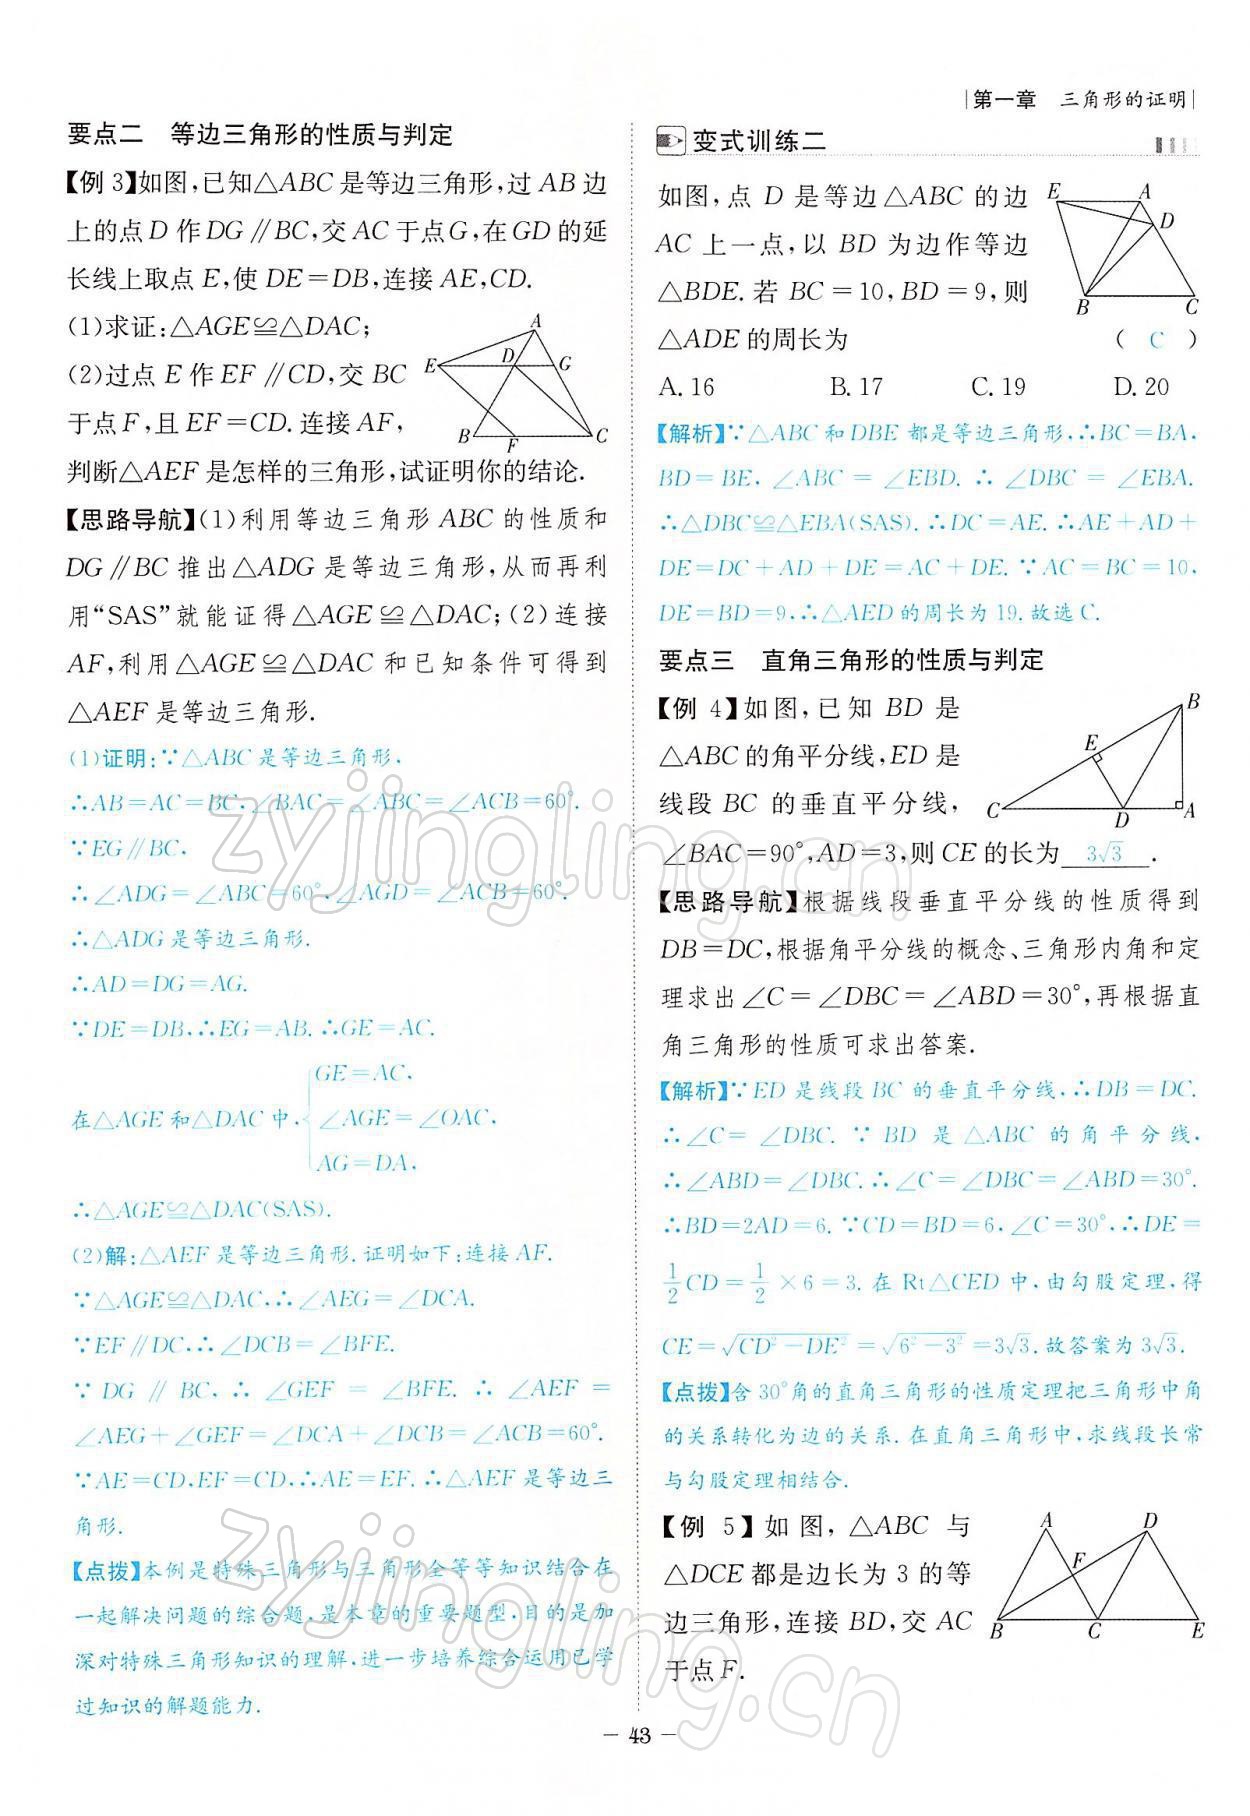 第一章 三角形的证明
要点二 等边三角形的性质与判定
【例3】如图,已知△ABC是等边三角形,过AB边
上的点D作DG∥BC,交AC于点G,在GD的延
长线上取点E,使DE=DB,连接AE,CD.
(1)求证:△AGE≌△DAC;
(2)过点E作EF∥CD,交BC
于点F,且EF=CD.连接AF,
判断△AEF是怎样的三角形,试证明你的结论.
A
E D G
B F C
【思路导航】(1)利用等边三角形ABC的性质和
DG∥BC推出△ADG是等边三角形,从而再利
用“SAS”就能证得△AGE≌△DAC;(2)连接
AF,利用△AGE≌△DAC和已知条件可得到
△AEF是等边三角形.
(1)证明:∵△ABC是等边三角形,
∴AB=AC=BC,∠BAC=∠ABC=∠ACB=60°.
∵EG∥BC,
∴∠ADG=∠ABC=60°,∠AGD=∠ACB=60°.
∴△ADG是等边三角形.
∴AD=DG=AG.
∵DE=DB,∴EG=AB.∴GE=AC.
GE=AC,
在△AGE和△DAC中, ∠AGE=∠OAC,
AG=DA,
∴△AGE≌△DAC(SAS).
(2)解:△AEF是等边三角形.证明如下:连接AF.
∵△AGE≌△DAC,∴∠AEG=∠DCA.
∵EF∥DC,∴∠DCB=∠BFE.
∵DG∥BC,∴∠GEF=∠BFE.∴∠AEF=
∠AEG+∠GEF=∠DCA+∠DCB=∠ACB=60°.
∵AE=CD,EF=CD,∴AE=EF.∴△AEF是等边三
角形.
【点拨】本例是特殊三角形与三角形全等等知识结合在
一起解决问题的综合题,是本章的重要题型,目的是加
深对特殊三角形知识的理解,进一步培养综合运用已学
过知识的解题能力.
变式训练二
如图,点D是等边△ABC的边
AC上一点,以BD为边作等边
△BDE.若BC=10,BD=9,则
△ADE的周长为 ( C )
E A
D
B C
A.16 B.17 C.19 D.20
【解析】∵△ABC和DBE都是等边三角形,∴BC=BA,
BD=BE,∠ABC=∠EBD.∴∠DBC=∠EBA.
∴△DBC≌△EBA(SAS).∴DC=AE.∴AE+AD+
DE=DC+AD+DE=AC+DE.∵AC=BC=10,
DE=BD=9,∴△AED的周长为19.故选C.
要点三 直角三角形的性质与判定
【例4】如图,已知BD是
△ABC的角平分线,ED是
线段BC的垂直平分线,
∠BAC=90°,AD=3,则CE的长为 3√3 .
B
E
C D A
【思路导航】根据线段垂直平分线的性质得到
DB=DC,根据角平分线的概念、三角形内角和定
理求出∠C=∠DBC=∠ABD=30°,再根据直
角三角形的性质可求出答案.
【解析】∵ED是线段BC的垂直平分线,∴DB=DC.
∴∠C=∠DBC.∵BD是△ABC的角平分线,
∴∠ABD=∠DBC.∴∠C=∠DBC=∠ABD=30°.
∴BD=2AD=6.∵CD=BD=6,∠C=30°,∴DE=
1/2CD=1/2×6=3.在Rt△CED中,由勾股定理,得
CE=√(CD²-DE²)=√(6²-3²)=3√3.故答案为3√3.
【点拨】含30°角的直角三角形的性质定理把三角形中角
的关系转化为边的关系.在直角三角形中,求线段长常
与勾股定理相结合.
【例5】如图,△ABC与
△DCE都是边长为3的等
边三角形,连接BD,交AC
于点F.
A D
F
B C E
— 43 —
zyjingling.cn
zyjingling.cn